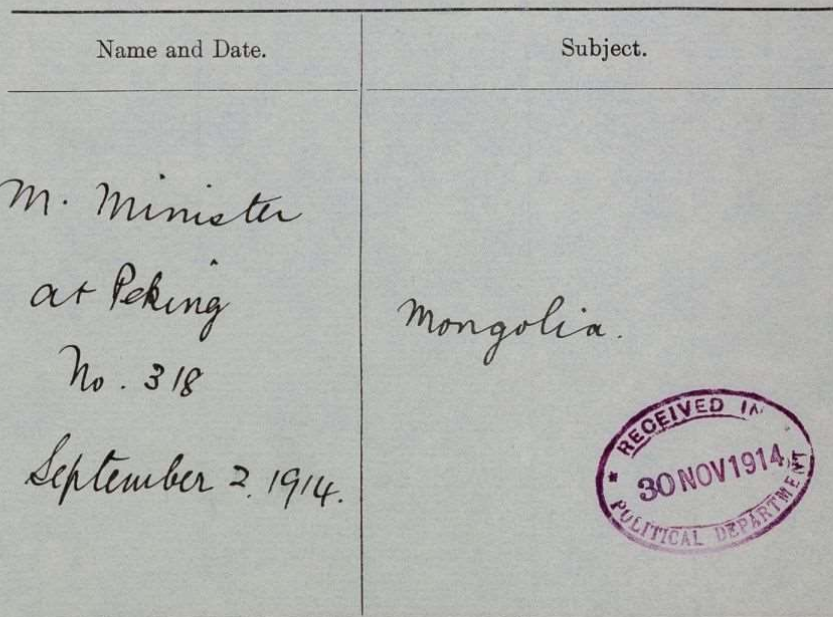 Name and Date.
Subject.
M. Minister
at Peking
No. 318
September 2. 1914.
Mongolia.
RECEIVED IN
30 NOV 1914
POLITICAL DEPARTMENT